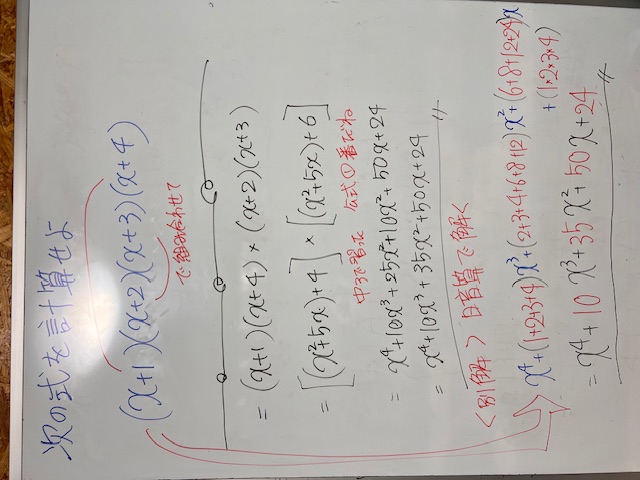 次の式を計算せよ
(x+1)(x+2)(x+3)(x+4)
で組み合わせて
= (x+1)(x+4) × (x+2)(x+3)
= [(x²+5x)+4] × [(x²+5x)+6]
中3で習った 公式①番だね
= x⁴+10x³+25x²+10x²+50x+24
= x⁴+10x³+35x²+50x+24
<別解> 暗算で解く
x⁴+(1+2+3+4)x³+(2+3+4+6+8+12)x²+(6+8+12+24)x
+(1×2×3×4)
= x⁴+10x³+35x²+50x+24